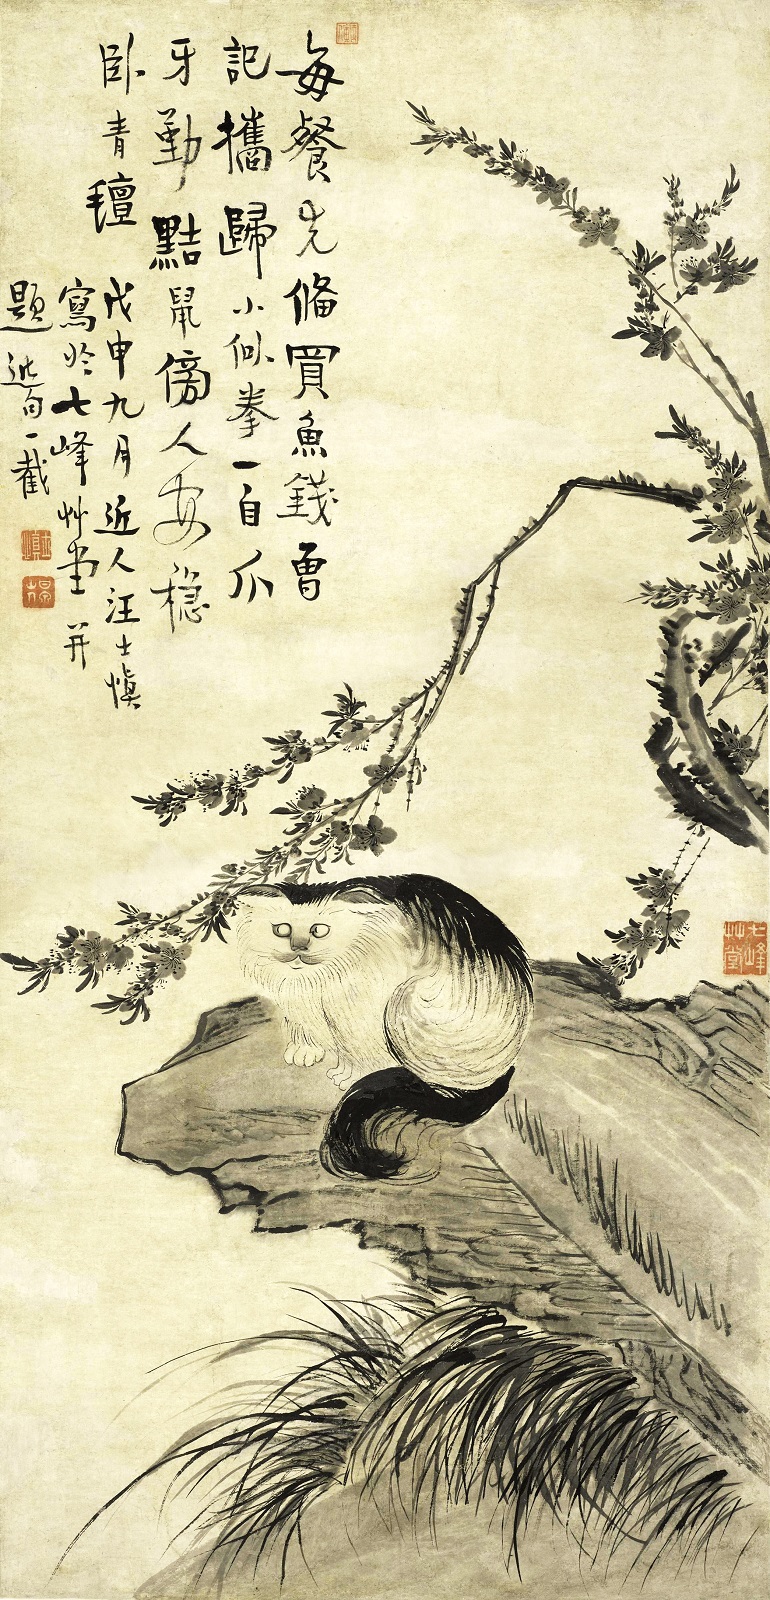 每餐先備買魚錢曾
記攜歸小似拳一自爪
牙勤黠鼠傍人安穩
臥青氊
戊申九月近人汪士慎
寫於七峰艸堂并
題近句一截
七峰艸堂